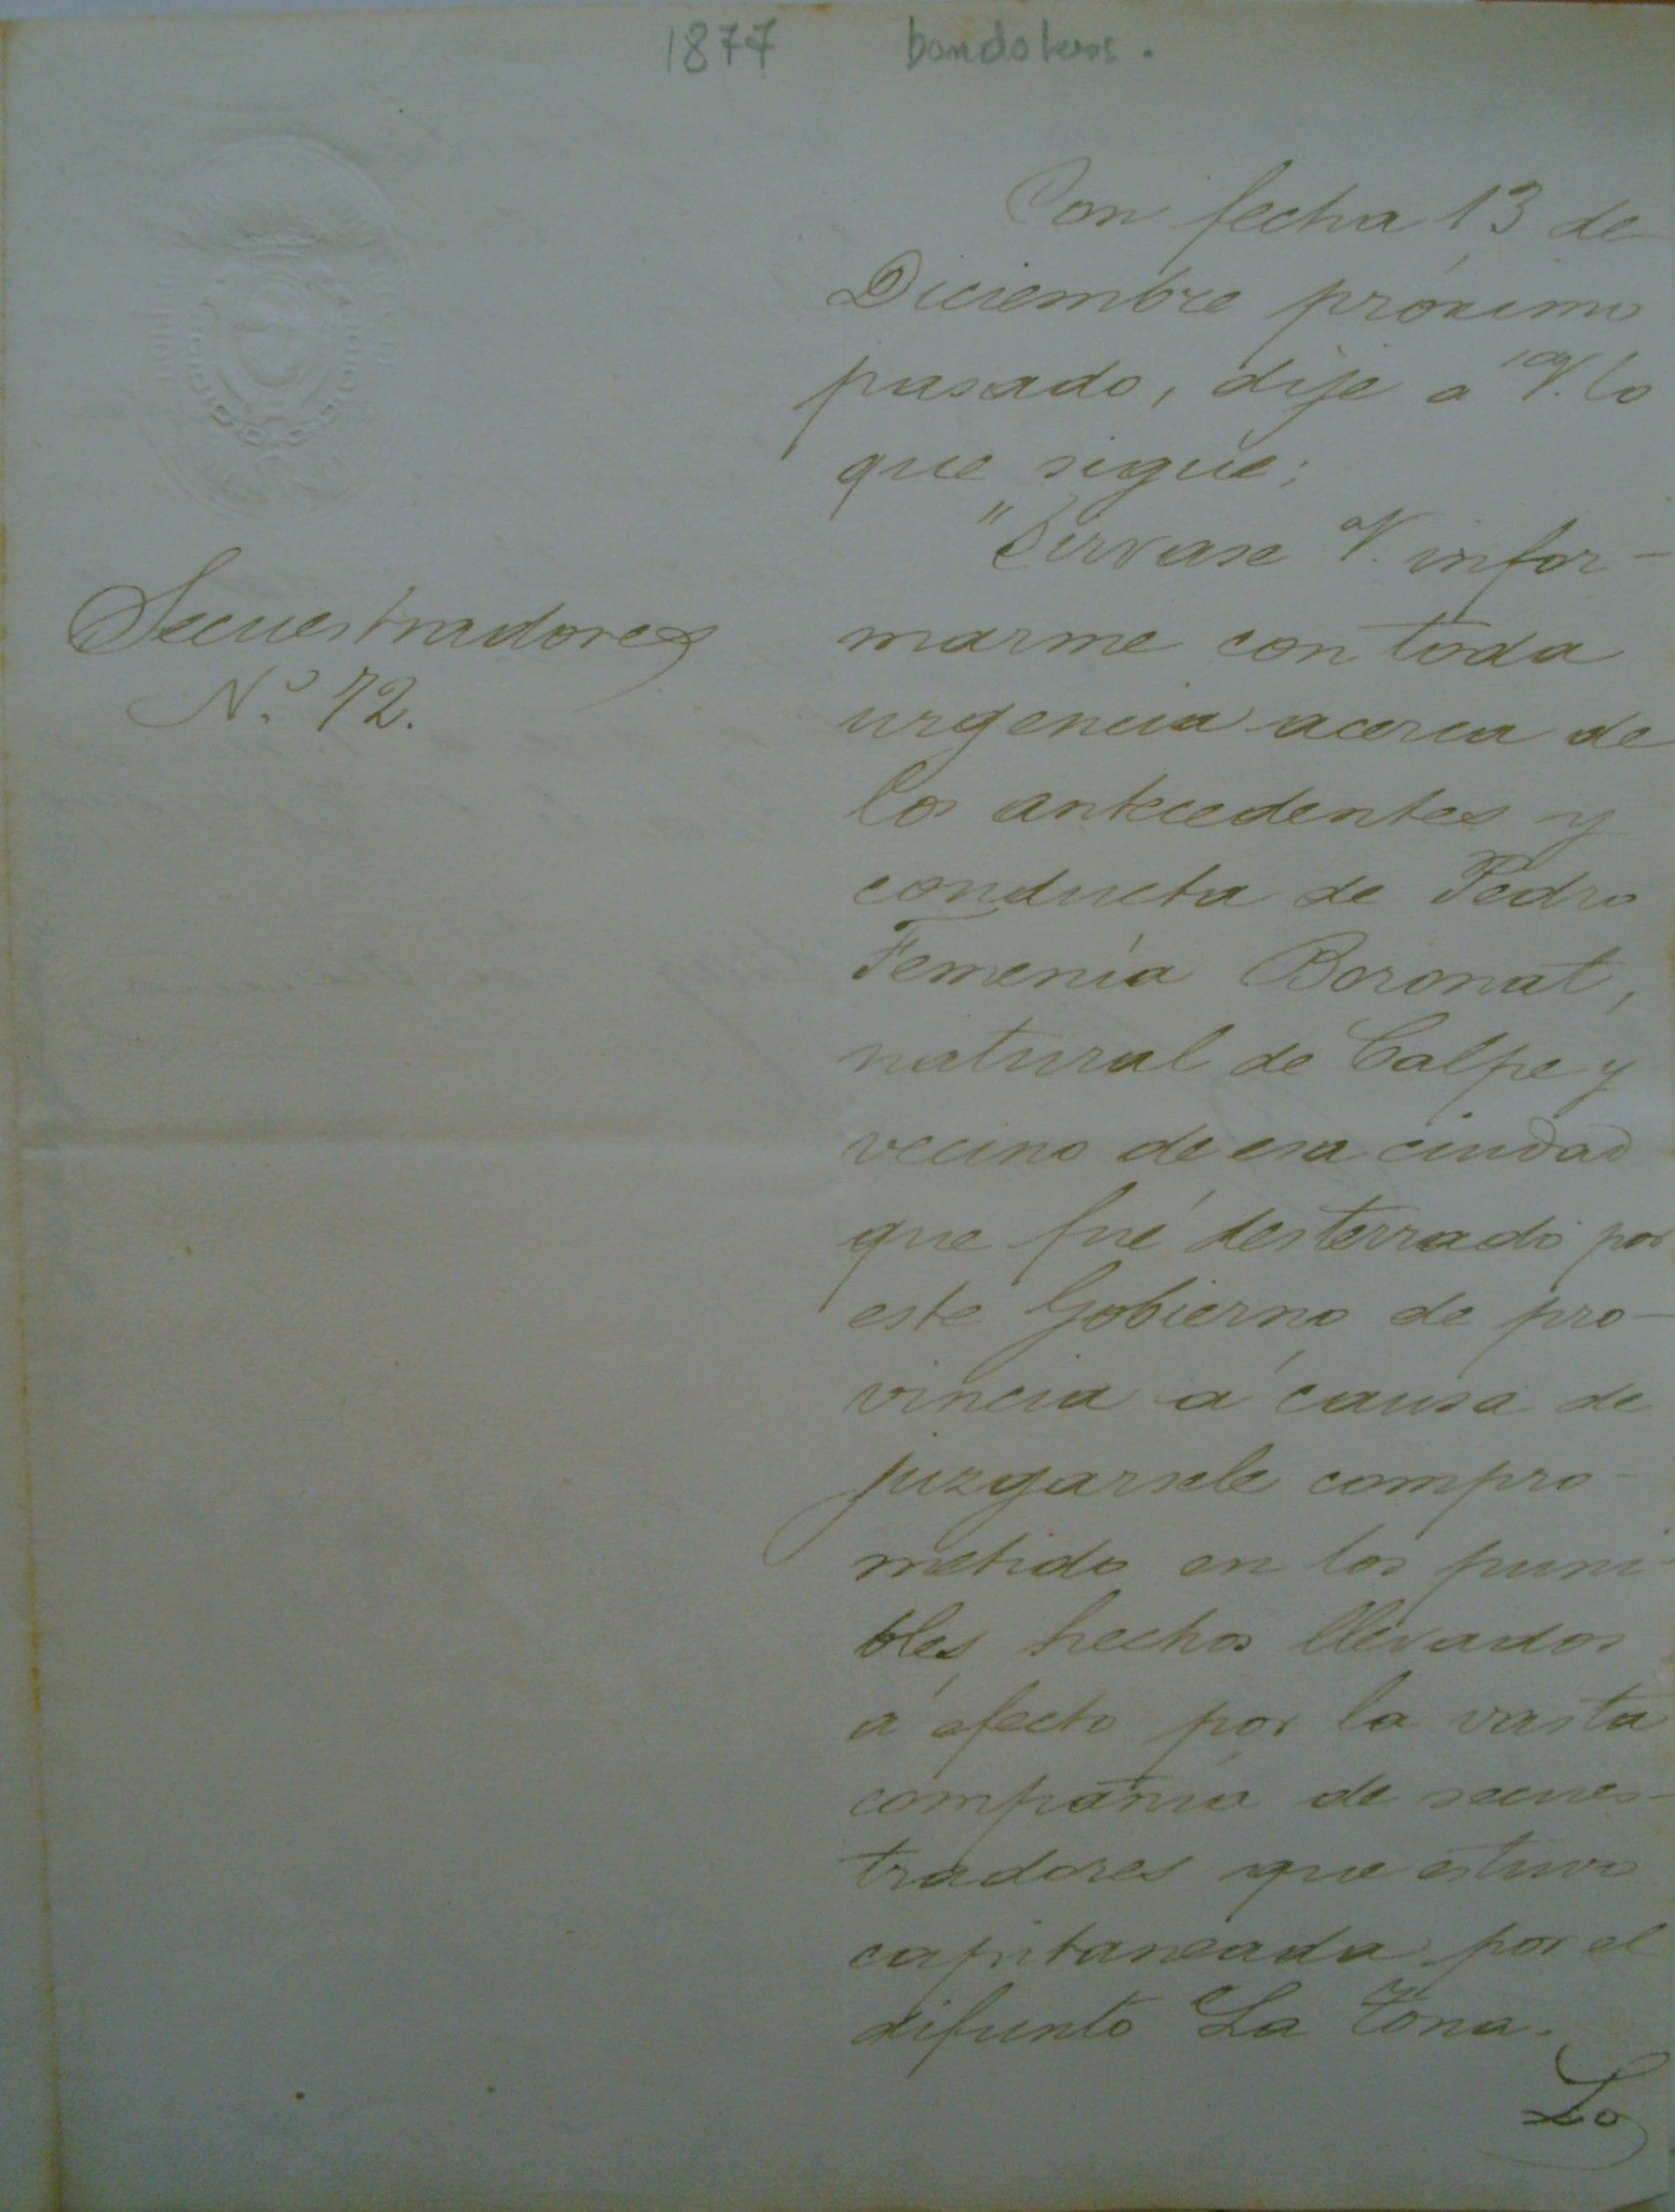 1877 bandoleros.
Con fecha 13 de
Diciembre próximo
pasado, dije a V. lo
que sigue:
"Sirvase V. infor-
Secuestradores
N.º 72.
marme con toda
urgencia acerca de
los antecedentes y
conducta de Pedro
Femenía Boronat,
natural de Calpe y
vecino de esa ciudad
que fué desterrado por
este Gobierno de pro-
vincia á causa de
juzgarsele compro-
metido en los puni-
bles hechos llevados
á efecto por la vasta
compañía de secues-
tradores que estuvo
capitaneada por el
difunto La Tona.
Lo